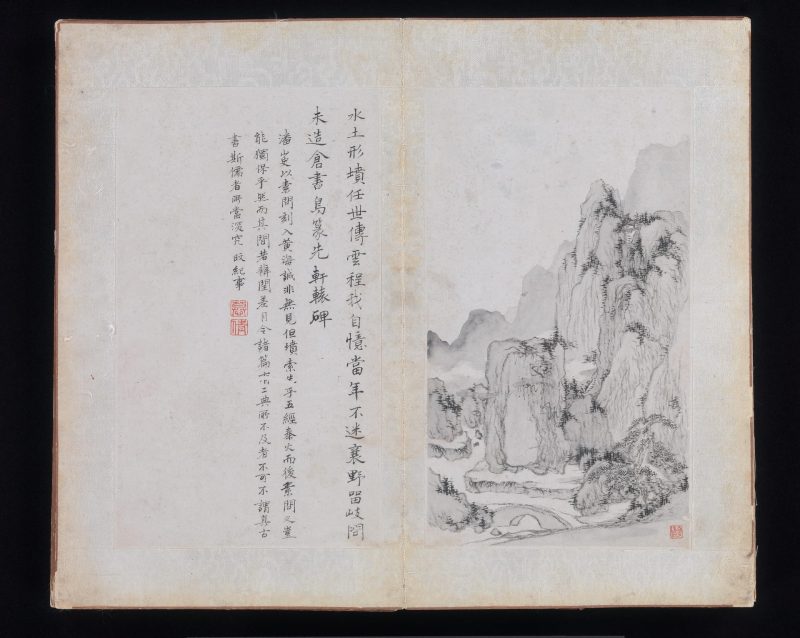 水土形墳任世傳雲程我自憶當年不迷襄野留岐問
未造倉書鳥篆先 軒轅碑
潘 以素問刻入黃海誠非無見但墳索先乎五經秦火而後素問又豈
能獨保乎然而其間若辯閏差月令諸篇 二典所不及者不可不謂真古
書斯儒者所當深究 故紀事